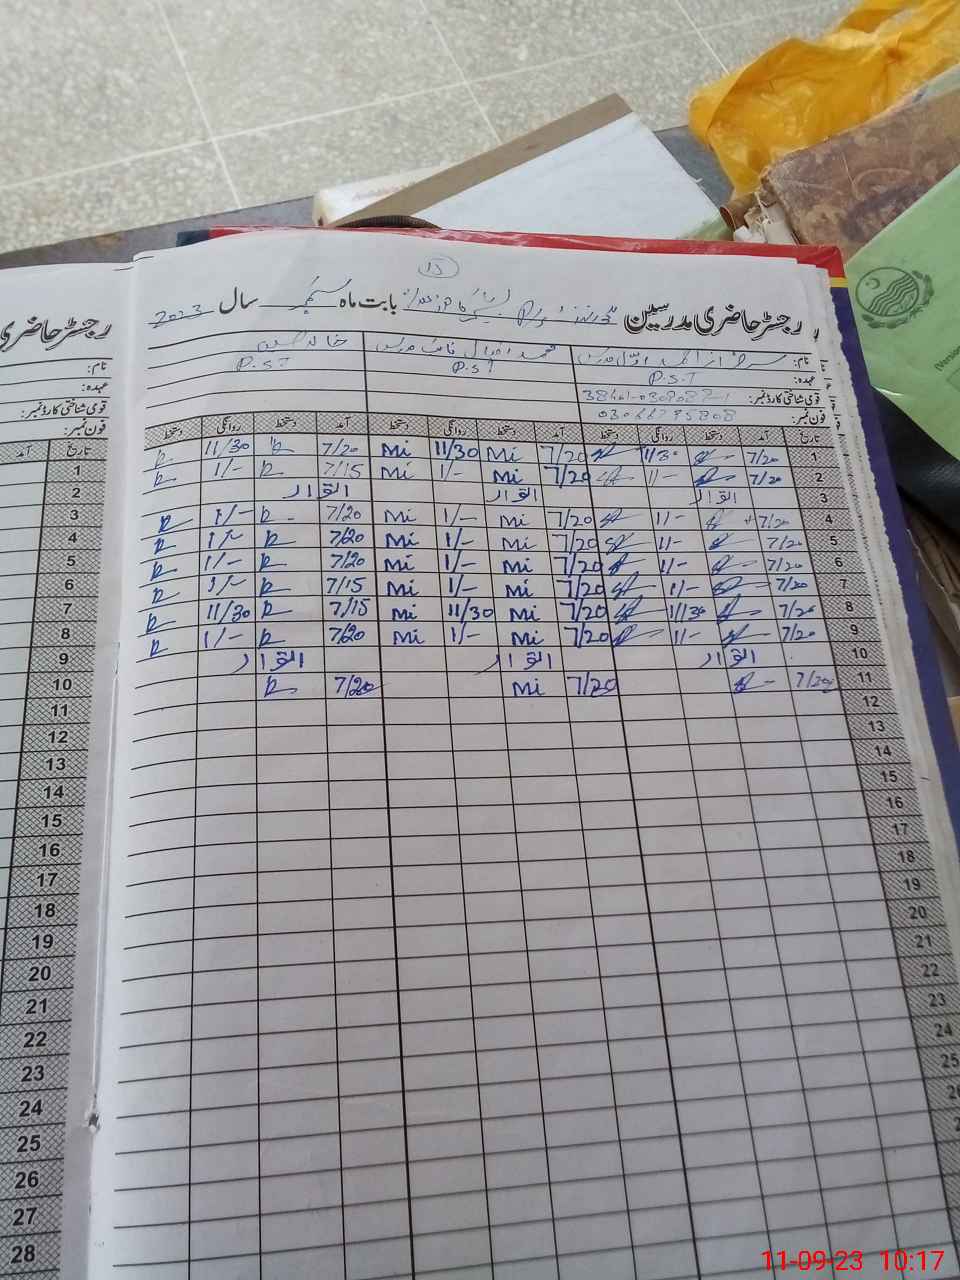 15
رجسٹر حاضری مدرسین بابت ماہ ستمبر سال 2023
نام: سرفراز احمد اول مدرس محمد اقبال نائب مدرس خالد حسین
عہدہ: P.S.T P.S.T P.S.T
قومی شناختی کارڈ نمبر:
فون نمبر:
تاریخ آمد دستخط روانگی دستخط آمد دستخط روانگی دستخط آمد دستخط روانگی دستخط
1 7/20 11/30 7/20 Mi 11/30 Mi 7/20 11/30
2 7/20 1/- 7/20 Mi 1/- Mi 7/15 1/-
3 اتوار اتوار اتوار
4 7/20 1/- 7/20 Mi 1/- Mi 7/20 1/-
5 7/20 1/- 7/20 Mi 1/- Mi 7/20 1/-
6 7/20 1/- 7/20 Mi 1/- Mi 7/20 1/-
7 7/20 1/- 7/20 Mi 1/- Mi 7/15 1/-
8 7/20 11/30 7/20 Mi 11/30 Mi 7/15 11/30
9 7/20 1/- 7/20 Mi 1/- Mi 7/20 1/-
10 اتوار اتوار اتوار
11 7/20 7/20 Mi 7/20
12
13
14
15
16
17
18
19
20
21
22
23
24
25
رجسٹر حاضری
نام:
عہدہ:
قومی شناختی کارڈ نمبر:
فون نمبر:
تاریخ آمد
1
2
3
4
5
6
7
8
9
10
11
12
13
14
15
16
17
18
19
20
21
22
23
24
25
26
27
28
11-09-23 10:17